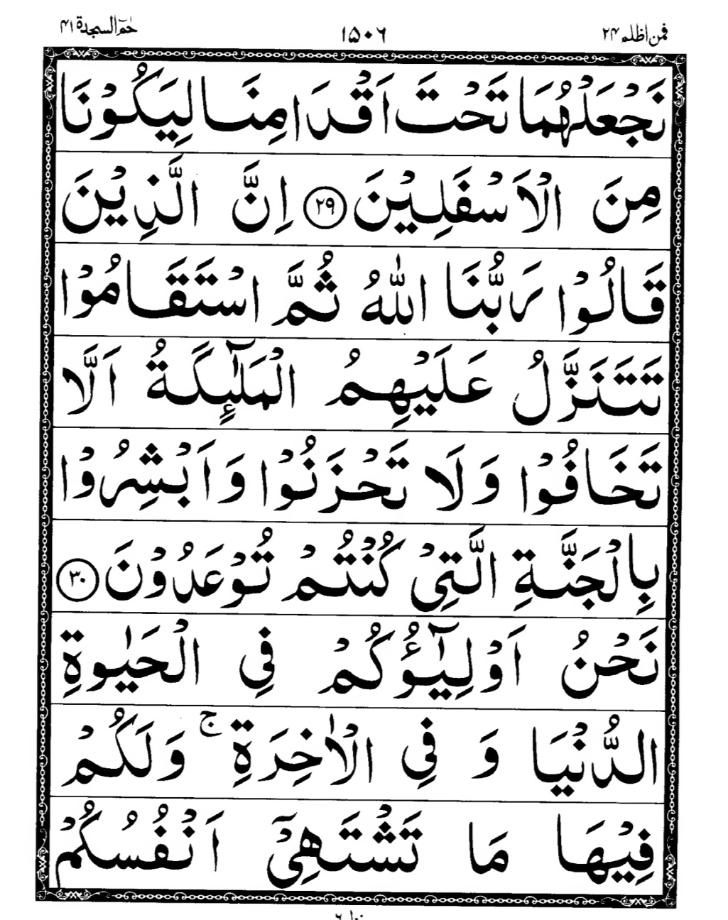 فمن اظلم ۲۴ ۱۵۰۶ حٰمٓ السجدۃ ۴۱
نَجْعَلْهُمَا تَحْتَ اَقْدَامِنَا لِيَكُوْنَا
مِنَ الْاَسْفَلِيْنَ ۲۹ اِنَّ الَّذِيْنَ
قَالُوْا رَبُّنَا اللّٰهُ ثُمَّ اسْتَقَامُوْا
تَتَنَزَّلُ عَلَيْهِمُ الْمَلٰٓئِكَةُ اَلَّا
تَخَافُوْا وَلَا تَحْزَنُوْا وَاَبْشِرُوْا
بِالْجَنَّةِ الَّتِيْ كُنْتُمْ تُوْعَدُوْنَ ۳۰
نَحْنُ اَوْلِيٰٓؤُكُمْ فِي الْحَيٰوةِ
الدُّنْيَا وَ فِي الْاٰخِرَةِ ۚ وَلَكُمْ
فِيْهَا مَا تَشْتَهِيْٓ اَنْفُسُكُمْ